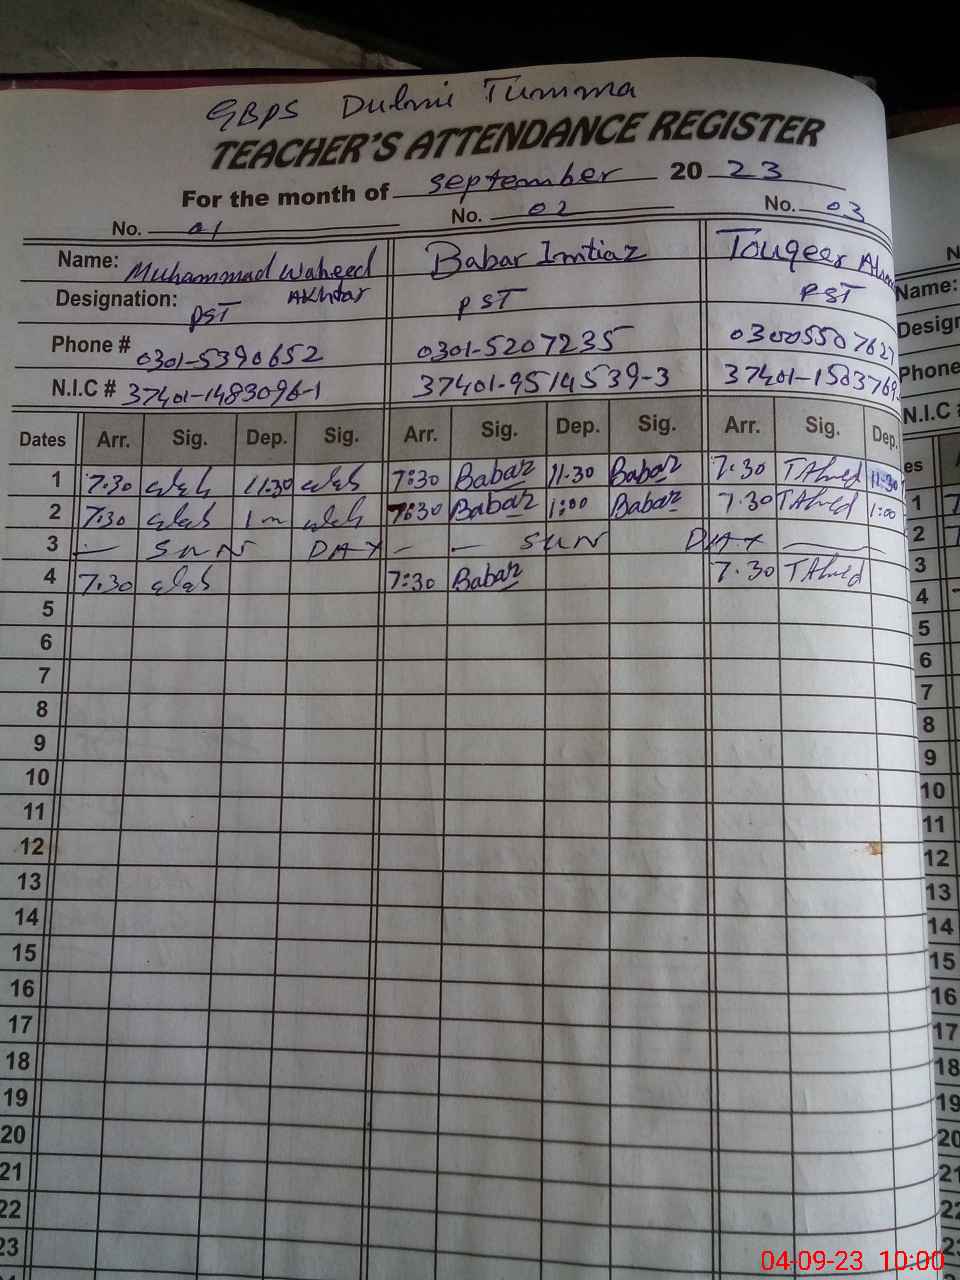 GBPS Dulmi Tumma
TEACHER'S ATTENDANCE REGISTER
For the month of September 20 23
No. 01 No. 02 No. 03
Name: Muhammad Waheed Akhtar Babar Imtiaz Touqeer
Designation: PST PST PST
Phone # 0301-5390652 0301-5207235 03005507627
N.I.C # 37401-1483096-1 37401-9514539-3 37401-1503769
Dates Arr. Sig. Dep. Sig. Arr. Sig. Dep. Sig. Arr. Sig. Dep.
1 7.30 11.30 7:30 Babar 11.30 Babar 7.30 TAhmed 11.30
2 7.30 7:30 Babar 1:00 Babar 7.30 TAhmed 1:00
3 — SUN DAY — — SUN DAY —
4 7.30 7:30 Babar 7.30 TAhmed
5
6
7
8
9
10
11
12
13
14
15
16
17
18
19
20
21
22
23
Name:
Phone
N.I.C #
1
2
3
4
5
6
7
8
9
10
11
12
13
14
15
16
17
18
19
20
21
22
04-09-23 10:00